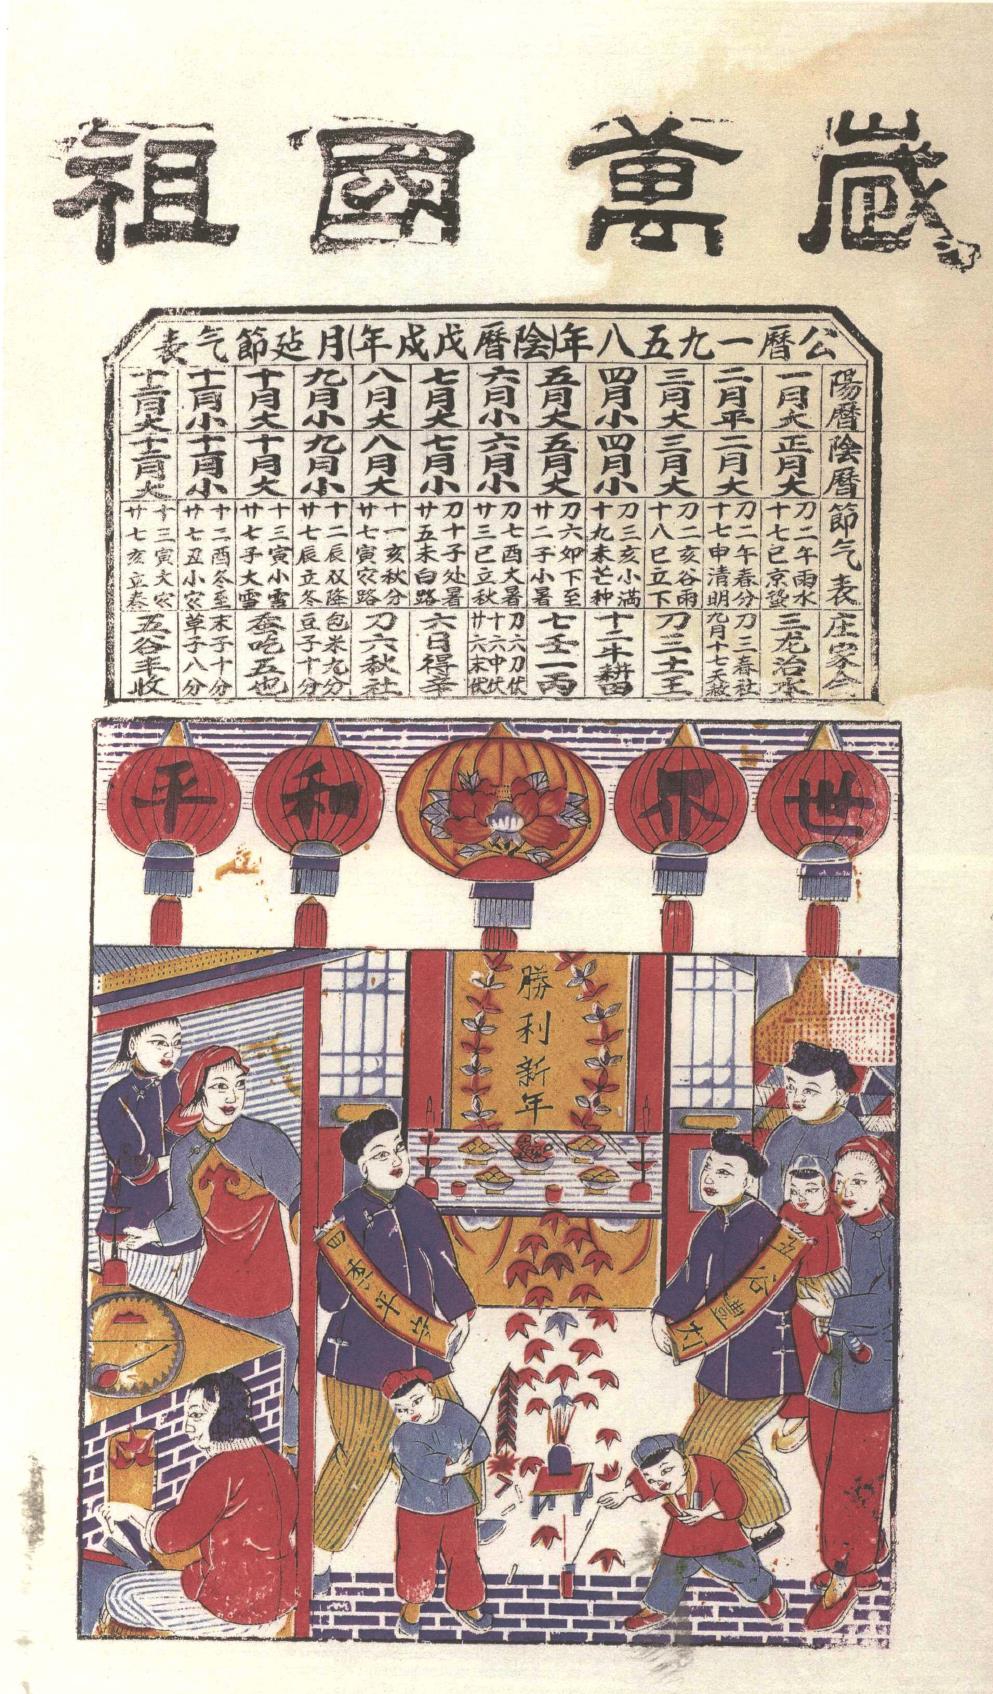 祖國萬歲
公曆一九五八年(陰曆戊戌年)月建節气表
陽曆 一月大 二月平 三月大 四月小 五月大 六月小 七月大 八月大 九月小 十月大 十一月小 十二月大
陰曆 正月大 二月大 三月大 四月小 五月大 六月小 七月小 八月大 九月小 十月大 十一月小 十二月大
節气表 刀二午雨水 十七巳京蛰 刀二午春分 十七申清明 刀二亥谷雨 十八巳立下 刀三亥小满 十九未芒种 刀六卯下至 廿二子小暑 刀七酉大暑 廿三巳立秋 刀十子处暑 廿五未白路 十一亥秋分 廿七寅路 十二辰双降 廿七辰立冬 十三寅小雪 廿七子大雪 十二酉冬至 廿七丑小 十三寅大 廿七亥立春
庄家令 三龙治水 刀三春社 九月十七天赦 刀三十一王 十二牛耕田 七壬一丙 刀六刀伏 十六中伏 廿六末伏 六日得辛 刀六秋社 包米九分 豆子十分 蚕吃五也 末子十分 草子八分 五谷丰收
世界和平
勝利新年
四季平安
五谷豐